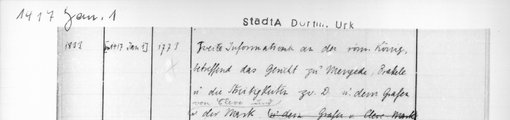 1417 Jan. 1
StadtA Dortm. Urk
1893 [1417 Jan 1] 1773 Zweite Informationen an den röm. König,
betreffend das Gericht zu Mengede, Brakele
u die Streitigkeiten zw. D. u dem Grafen
von Cleve und
v der Mark (u dem Grafen v Cleve Mark